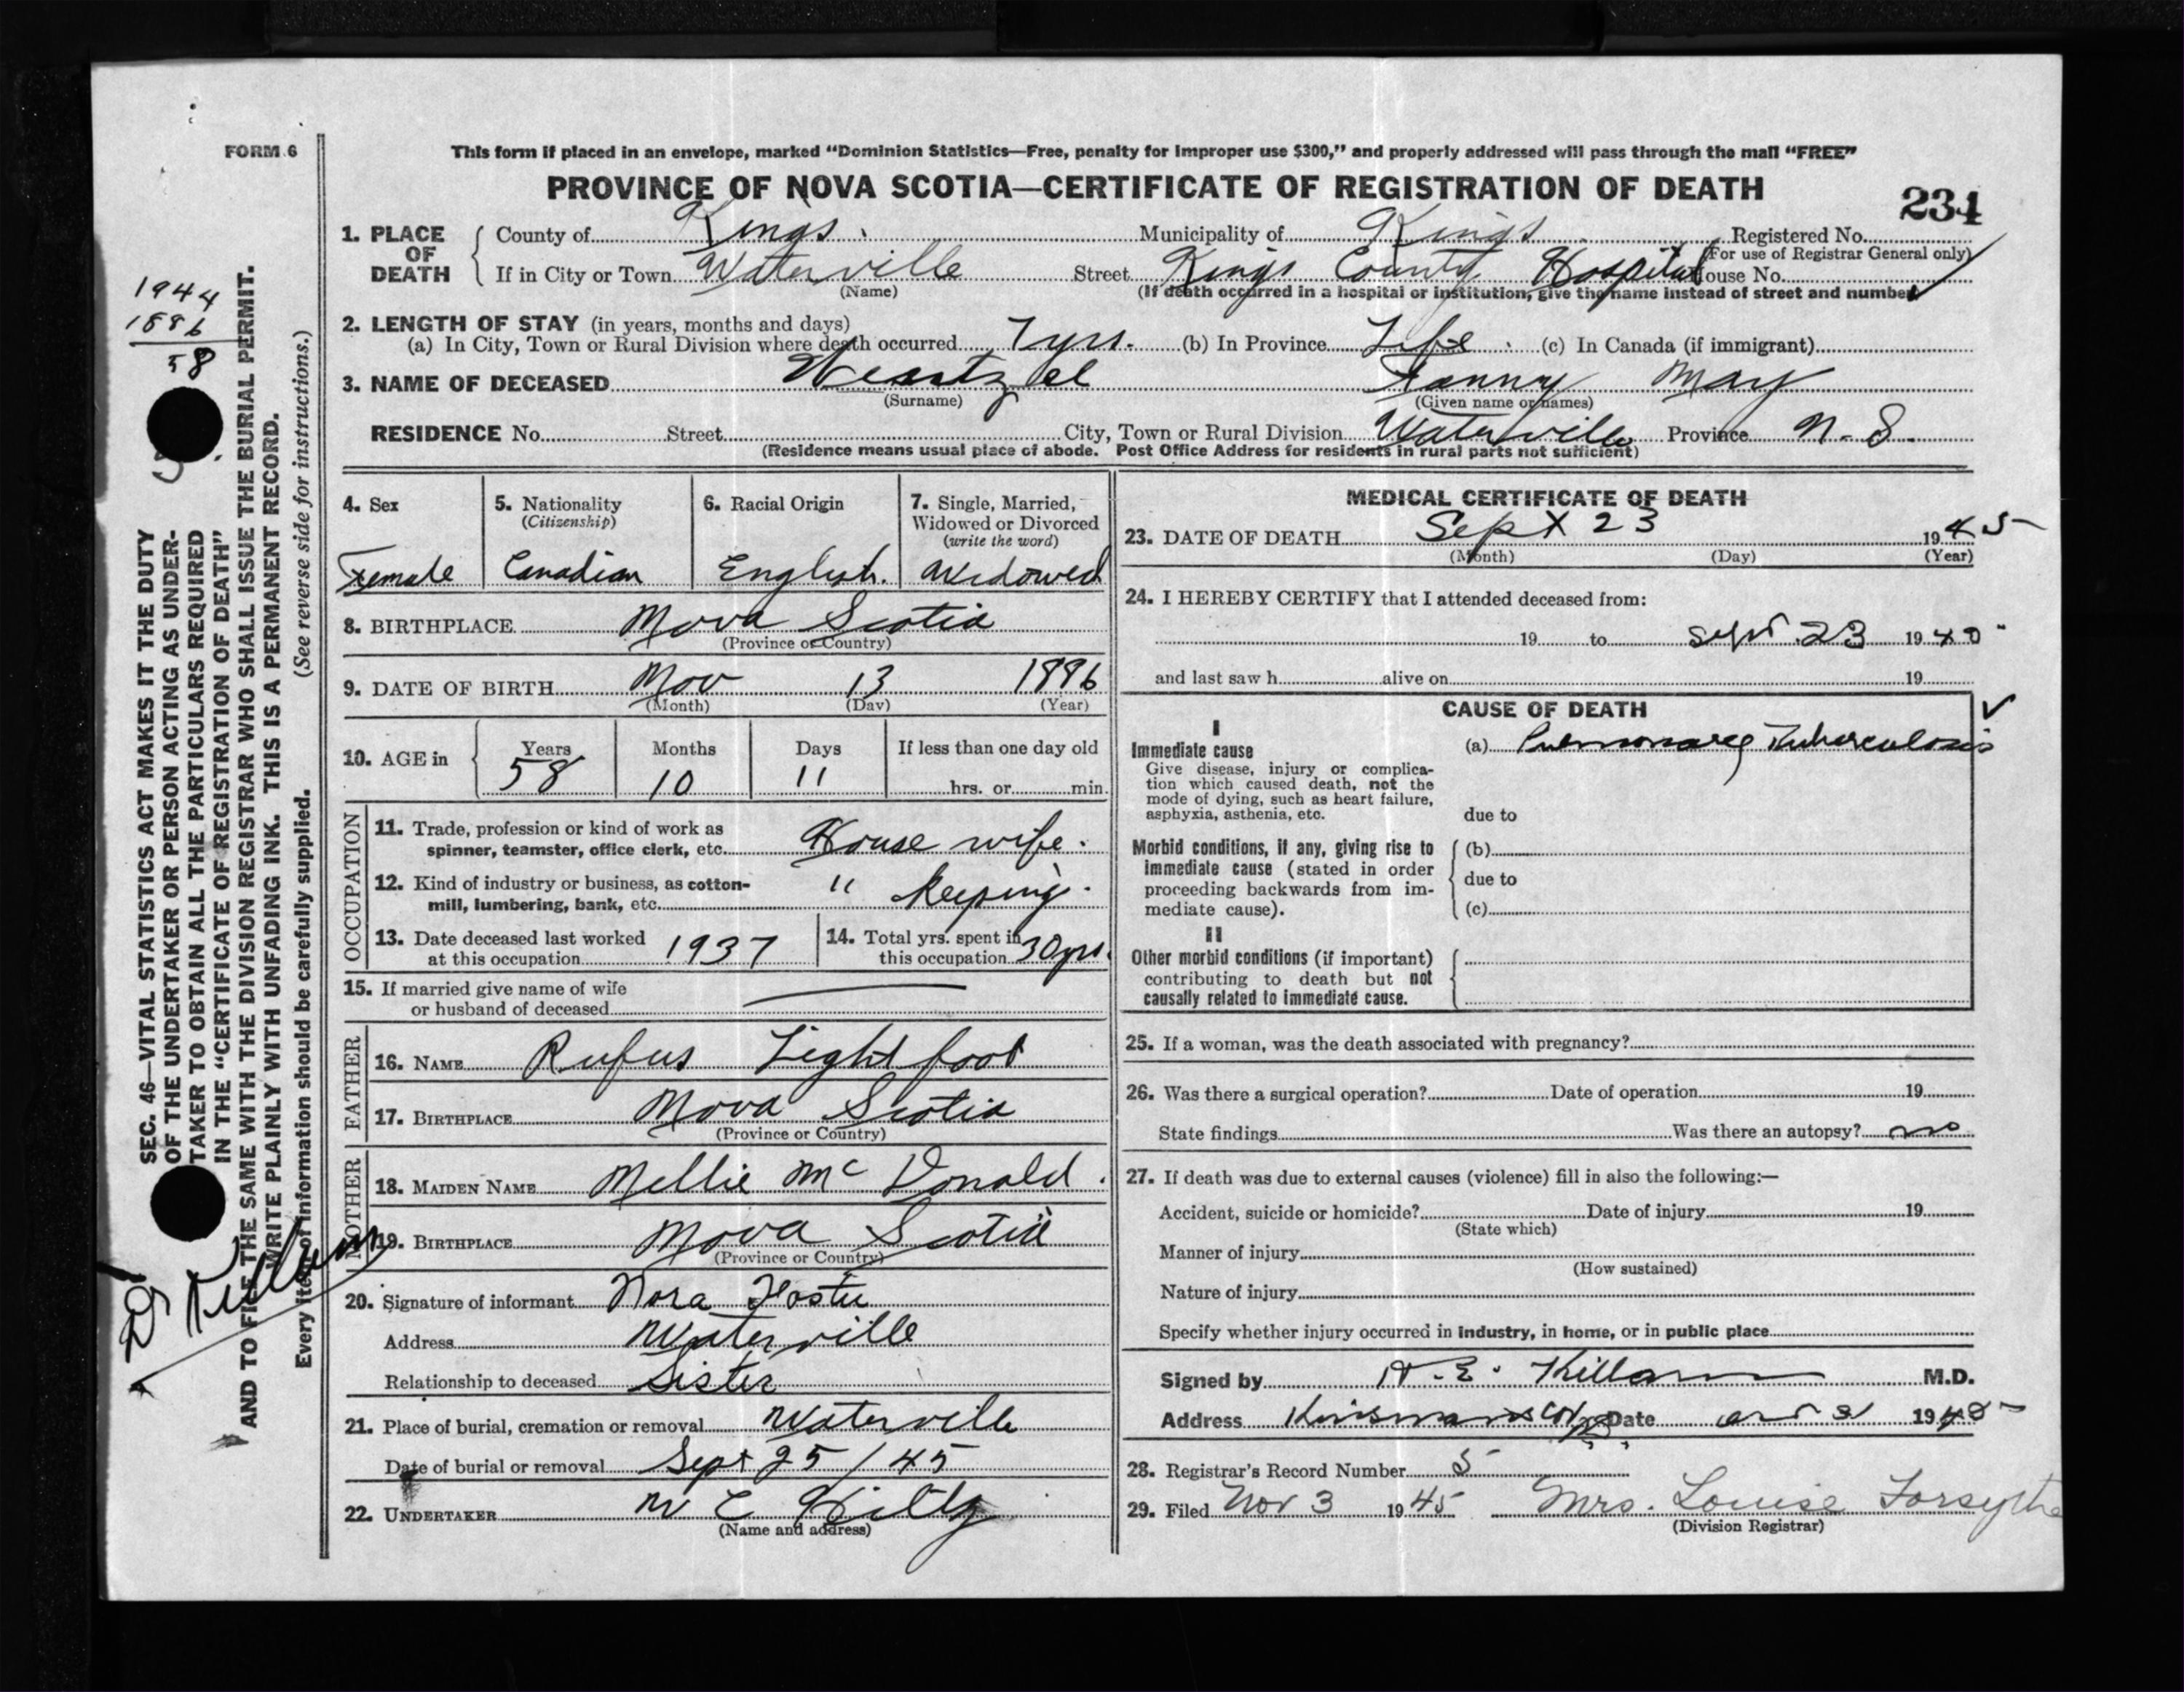 FORM 6
This form if placed in an envelope, marked “Dominion Statistics—Free, penalty for improper use $300,” and properly addressed will pass through the mail “FREE”
PROVINCE OF NOVA SCOTIA—CERTIFICATE OF REGISTRATION OF DEATH
234
1. PLACE OF DEATH County of Kings. Municipality of Kings Registered No.
(For use of Registrar General only)
If in City or Town Waterville Street Kings County Hospital House No.
(Name) (If death occurred in a hospital or institution, give the name instead of street and number)
2. LENGTH OF STAY (in years, months and days)
(a) In City, Town or Rural Division where death occurred 7 yrs. (b) In Province Life. (c) In Canada (if immigrant)
3. NAME OF DECEASED Fanny May
(Surname) (Given name or names)
RESIDENCE No. Street City, Town or Rural Division Waterville Province N. S.
(Residence means usual place of abode. Post Office Address for residents in rural parts not sufficient)
4. Sex
Female
5. Nationality
(Citizenship)
Canadian
6. Racial Origin
English.
7. Single, Married,
Widowed or Divorced
(write the word)
Widowed
8. BIRTHPLACE Nova Scotia
(Province or Country)
9. DATE OF BIRTH Nov 13 1886
(Month) (Day) (Year)
10. AGE in Years Months Days If less than one day old
58 10 11 hrs. or min.
OCCUPATION
11. Trade, profession or kind of work as
spinner, teamster, office clerk, etc. House wife.
12. Kind of industry or business, as cotton-
mill, lumbering, bank, etc. " keeping.
13. Date deceased last worked
at this occupation 1937
14. Total yrs. spent in
this occupation 30 yrs.
15. If married give name of wife
or husband of deceased
FATHER
16. NAME Rufus Lightfoot
17. BIRTHPLACE Nova Scotia
(Province or Country)
MOTHER
18. MAIDEN NAME Nellie McDonald.
19. BIRTHPLACE Nova Scotia
(Province or Country)
20. Signature of informant Nora Foster
Address Waterville
Relationship to deceased Sister
21. Place of burial, cremation or removal Waterville
Date of burial or removal Sept 25/45
22. UNDERTAKER W E Hiltz
(Name and address)
MEDICAL CERTIFICATE OF DEATH
23. DATE OF DEATH Sept 23 1945
(Month) (Day) (Year)
24. I HEREBY CERTIFY that I attended deceased from:
19 to Sept. 23 1945
and last saw h alive on 19
CAUSE OF DEATH
I
Immediate cause
Give disease, injury or complica-
tion which caused death, not the
mode of dying, such as heart failure,
asphyxia, asthenia, etc.
(a) Pulmonary Tuberculosis
due to
Morbid conditions, if any, giving rise to
immediate cause (stated in order
proceeding backwards from im-
mediate cause).
(b)
due to
(c)
II
Other morbid conditions (if important)
contributing to death but not
causally related to immediate cause.
25. If a woman, was the death associated with pregnancy?
26. Was there a surgical operation? Date of operation 19
State findings Was there an autopsy? no
27. If death was due to external causes (violence) fill in also the following:—
Accident, suicide or homicide? Date of injury 19
(State which)
Manner of injury
(How sustained)
Nature of injury
Specify whether injury occurred in industry, in home, or in public place
Signed by Killam M.D.
Address Date 1945
28. Registrar's Record Number 5
29. Filed Nov 3 1945 Mrs. Louise Forsythe
(Division Registrar)
1944
1886
58
SEC. 46—VITAL STATISTICS ACT MAKES IT THE DUTY
OF THE UNDERTAKER OR PERSON ACTING AS UNDER-
TAKER TO OBTAIN ALL THE PARTICULARS REQUIRED
IN THE “CERTIFICATE OF REGISTRATION OF DEATH”
AND TO FILE THE SAME WITH THE DIVISION REGISTRAR WHO SHALL ISSUE THE BURIAL PERMIT.
WRITE PLAINLY WITH UNFADING INK. THIS IS A PERMANENT RECORD.
Every item of information should be carefully supplied. (See reverse side for instructions.)
Dr Killam